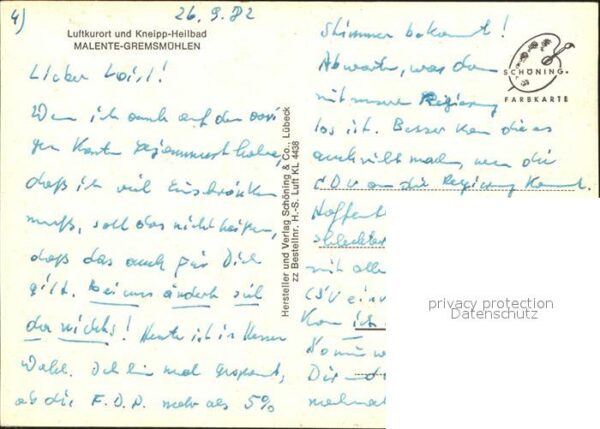 4) 26.9.82
Luftkurort und Kneipp-Heilbad
MALENTE-GREMSMÜHLEN
Lieber
Wenn ich auch auf den vori
gen Karten gejammert habe,
daß ich viel einschränken
muß, soll das nicht heißen,
daß das auch für Dich
gilt. Bei uns ändert sich
da nichts! Heute ist in Hessen
Wahl. Ich bin mal gespannt,
ob die F.D.P. mehr als 5%
Hersteller und Verlag Schöning & Co., Lübeck
zz Bestellnr. H.-S. Luft KL 4438
Stimmen bekommt!
Abwarten, was dann
mit unserer Regierung
los ist. Besser kann die es
auch nicht machen, wenn die
CDU an die Regierung kommt.
Hoffent
schlechter
mit alle
CSU ein
Kann ich
Dir
nochmal
SCHÖNING
FARBKARTE
privacy protection
Datenschutz